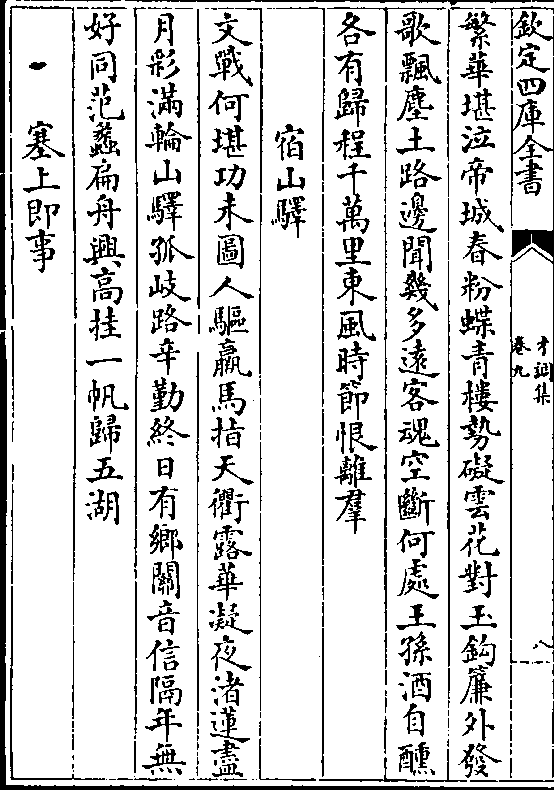 欽定四庫全書
才調集
卷九
八
繁華堪泣帝城春粉蝶青樓勢礙雲花對玉鈎簾外發
歌飄塵土路邊聞幾多遠客魂空斷何處王孫酒自醺
各有歸程千萬里東風時節恨離羣
宿山驛
文戰何堪功未圖人驅羸馬指天衢露華凝夜渚蓮盡
月彩滿輪山驛孤岐路辛勤終日有鄉關音信隔年無
好同范蠡扁舟興高挂一帆歸五湖
塞上即事